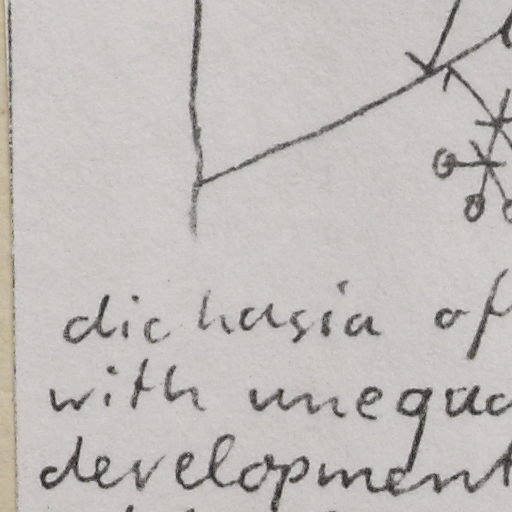 dichasia of
with unequa
development